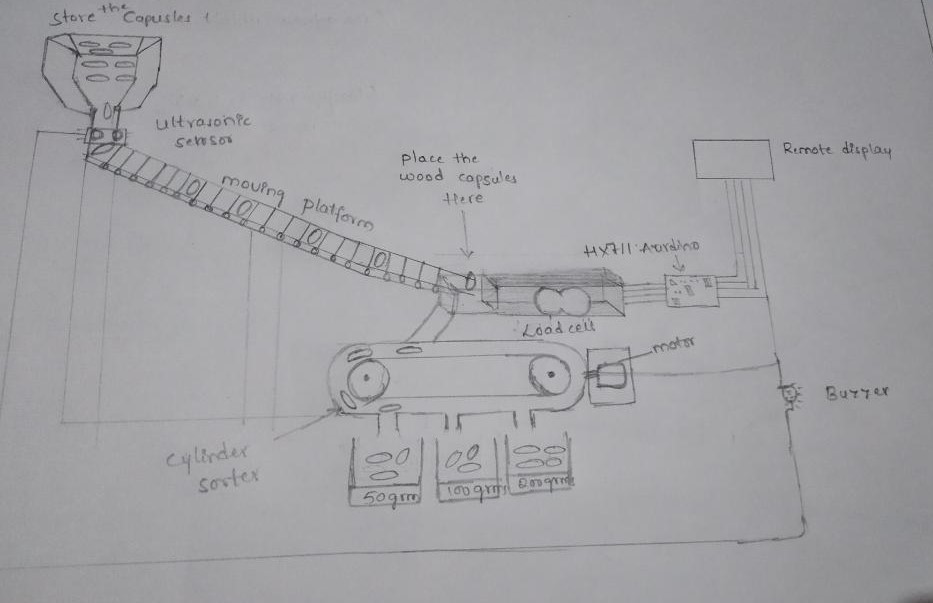 Store the Capusles
ultrasonic
sensor
moving platform
place the
wood capsules
Here
Remote display
HX711 Aurdino
Load cell
motor
Buzzer
cylinder
sorter
50grm
100grms
200grms